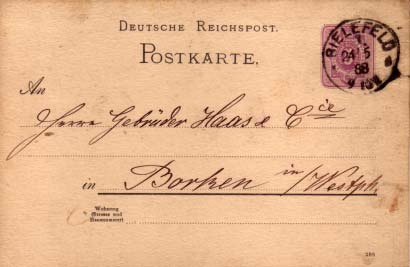 DEUTSCHE REICHSPOST.
POSTKARTE.
BIELEFELD
24 5
88
An
Herren Gebrüder Haas & Cie
in Borken in/Westph.
Wohnung
(Strasse und
Hausnummer)